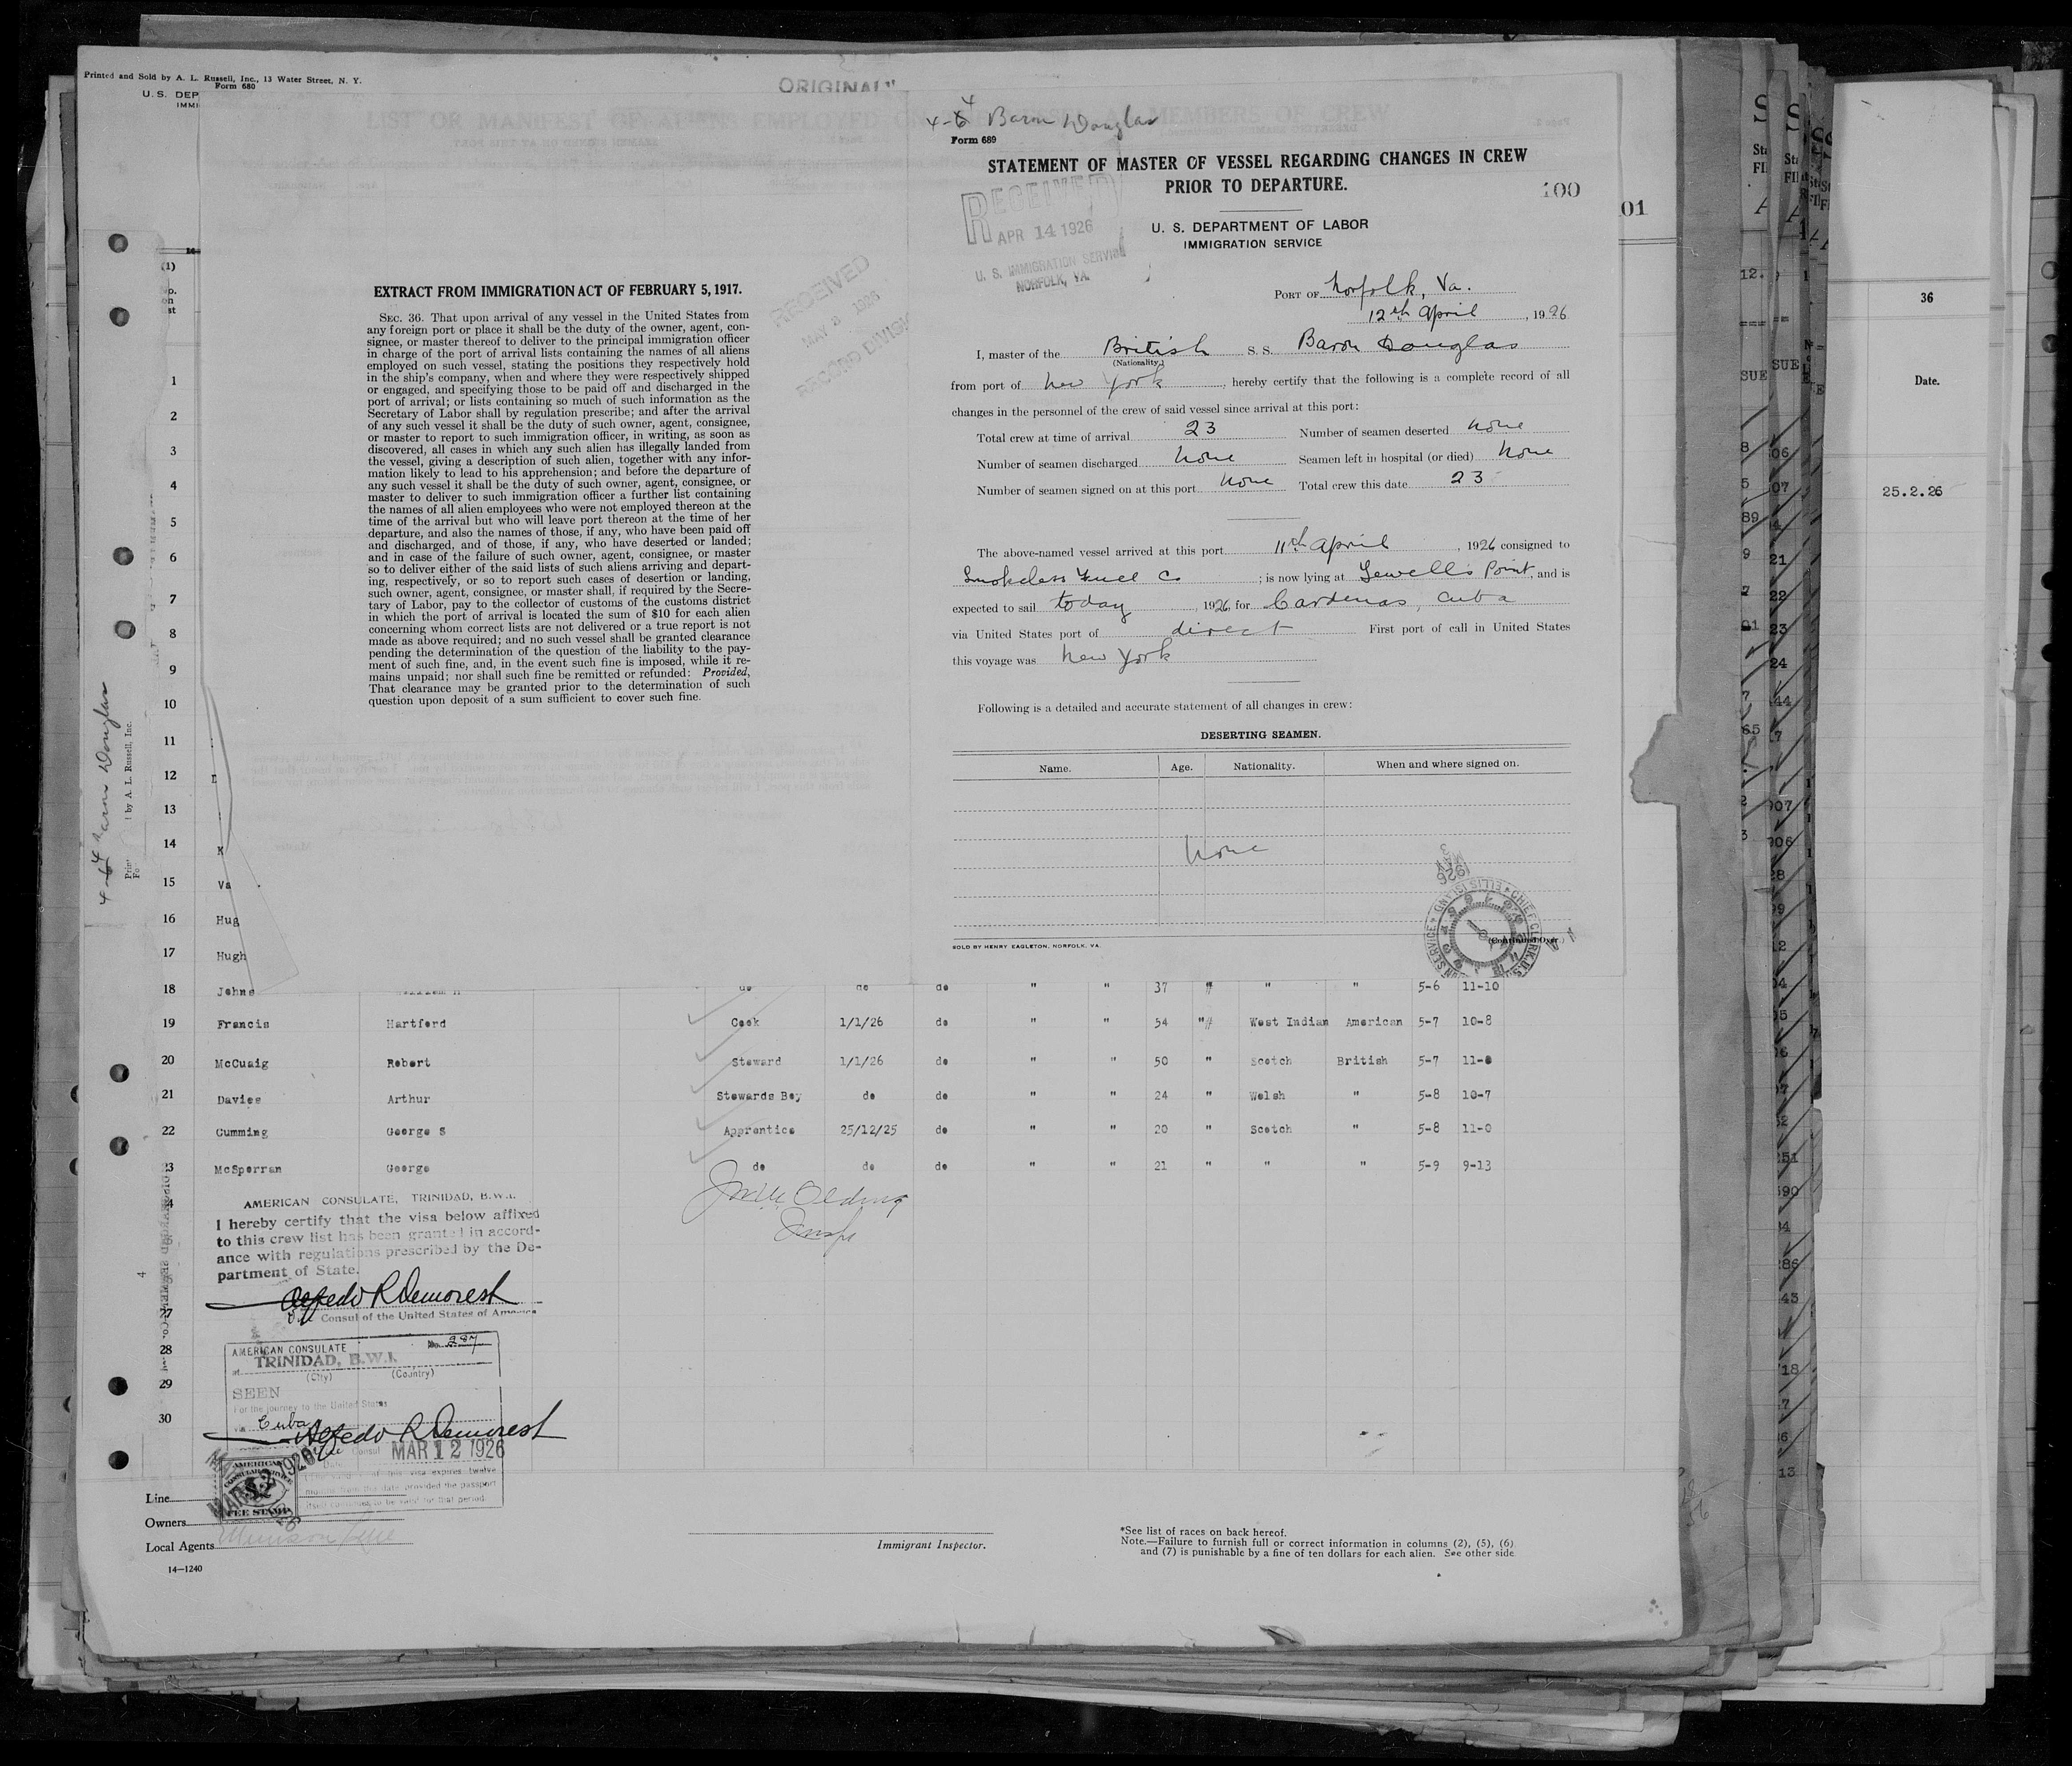 Printed and Sold by A. L. Russell, Inc., 13 Water Street, N. Y.
Form 680
U. S. DEP
IMMI
ORIGINAL
4-4 Baron Douglas
Form 689
STATEMENT OF MASTER OF VESSEL REGARDING CHANGES IN CREW
PRIOR TO DEPARTURE.
100
01
RECEIVED
APR 14 1926
U. S. IMMIGRATION SERVICE
NORFOLK, VA.
U. S. DEPARTMENT OF LABOR
IMMIGRATION SERVICE
PORT OF Norfolk, Va.
12th April, 1926
I, master of the British S. S. Baron Douglas
(Nationality.)
from port of New York, hereby certify that the following is a complete record of all
changes in the personnel of the crew of said vessel since arrival at this port:
Total crew at time of arrival 23 Number of seamen deserted None
Number of seamen discharged None Seamen left in hospital (or died) None
Number of seamen signed on at this port None Total crew this date 23
The above-named vessel arrived at this port 11th April, 1926 consigned to
Smokeless Fuel Co; is now lying at Sewells Point, and is
expected to sail today, 1926, for Cardenas, Cuba
via United States port of direct First port of call in United States
this voyage was New York
Following is a detailed and accurate statement of all changes in crew:
DESERTING SEAMEN.
Name. Age. Nationality. When and where signed on.
None
SOLD BY HENRY EAGLETON, NORFOLK, VA.
(Continued Over.)
EXTRACT FROM IMMIGRATION ACT OF FEBRUARY 5, 1917.
SEC. 36. That upon arrival of any vessel in the United States from
any foreign port or place it shall be the duty of the owner, agent, con-
signee, or master thereof to deliver to the principal immigration officer
in charge of the port of arrival lists containing the names of all aliens
employed on such vessel, stating the positions they respectively hold
in the ship's company, when and where they were respectively shipped
or engaged, and specifying those to be paid off and discharged in the
port of arrival; or lists containing so much of such information as the
Secretary of Labor shall by regulation prescribe; and after the arrival
of any such vessel it shall be the duty of such owner, agent, consignee,
or master to report to such immigration officer, in writing, as soon as
discovered, all cases in which any such alien has illegally landed from
the vessel, giving a description of such alien, together with any infor-
mation likely to lead to his apprehension; and before the departure of
any such vessel it shall be the duty of such owner, agent, consignee, or
master to deliver to such immigration officer a further list containing
the names of all alien employees who were not employed thereon at the
time of the arrival but who will leave port thereon at the time of her
departure, and also the names of those, if any, who have been paid off
and discharged, and of those, if any, who have deserted or landed;
and in case of the failure of such owner, agent, consignee, or master
so to deliver either of the said lists of such aliens arriving and depart-
ing, respectively, or so to report such cases of desertion or landing,
such owner, agent, consignee, or master shall, if required by the Secre-
tary of Labor, pay to the collector of customs of the customs district
in which the port of arrival is located the sum of $10 for each alien
concerning whom correct lists are not delivered or a true report is not
made as above required; and no such vessel shall be granted clearance
pending the determination of the question of the liability to the pay-
ment of such fine, and, in the event such fine is imposed, while it re-
mains unpaid; nor shall such fine be remitted or refunded: Provided,
That clearance may be granted prior to the determination of such
question upon deposit of a sum sufficient to cover such fine.
RECEIVED
MAY 3 1926
RECORD DIVISION
(1)
1
2
3
4
5
6
7
8
9
10
11
12
13
14 K
15 Va
16 Hug
17 Hugh
18 Johns William H do do do " " 37 " " " 5-6 11-10
19 Francis Hartford Cook 1/1/26 do " " 54 " West Indian American 5-7 10-8
20 McCuaig Robert Steward 1/1/26 do " " 50 " Scotch British 5-7 11-0
21 Davies Arthur Stewards Boy do do " " 24 " Welsh " 5-8 10-7
22 Cumming George S Apprentice 25/12/25 do " " 20 " Scotch " 5-8 11-0
3 McSporran George do do do " " 21 " " " 5-9 9-13
4 AMERICAN CONSULATE, TRINIDAD, B.W.I.
I hereby certify that the visa below affixed
to this crew list has been granted in accord-
ance with regulations prescribed by the De-
partment of State.
Alfredo R Demorest
Consul of the United States of America
27
28
29
30
AMERICAN CONSULATE No. 287
at TRINIDAD, B.W.I.
(City) (Country)
SEEN
For the journey to the United States
via Cuba
Alfredo R Demorest
Vice Consul MAR 12 1926
Date
expires twelve
months from the date provided the passport
itself continues to be valid for that period.
AMERICAN
CONSULAR SERVICE
$2
FEE STAMP
Line
Owners
Local Agents Munson Line
14—1240
Immigrant Inspector.
*See list of races on back hereof.
Note.—Failure to furnish full or correct information in columns (2), (5), (6)
and (7) is punishable by a fine of ten dollars for each alien. See other side
36
Date.
25.2.26